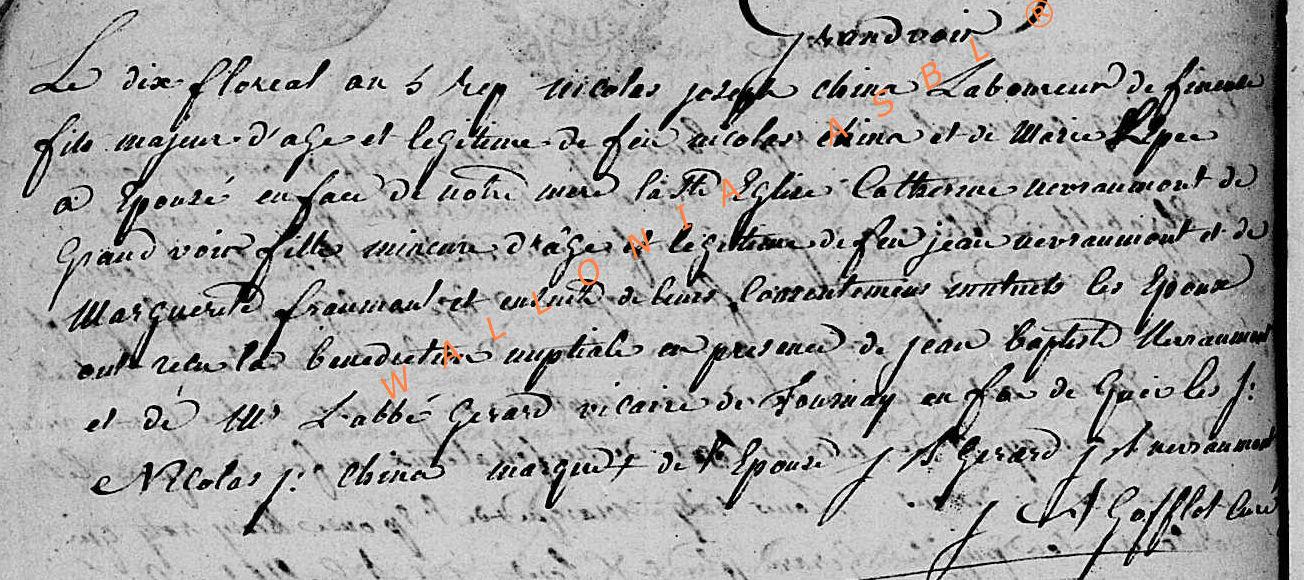 Grandvoir
Le dix floreal an 5 rep nicolas joseph china Laboureur de
fils majeur d'age et legitime de feu nicolas china et de Marie
a Epousé en face de notre mere la Ste Eglise Catherine nevraumont de
Grand voir fille mineure d'âge et legitime de feu jean nevraumont et de
Marguerite fraumant et ensuite de leurs consentemens mutuels les Epoux
ont recu la benediction nuptiale en presence de jean baptiste Nevraumont
et de Mr L'abbé Gerard vicaire de Tournay en foi de quoi les
Nicolas j: china marque + de l'Epouse j Gerard j nevraumont
j Gofflot curé
WALLONIA ASBL ®